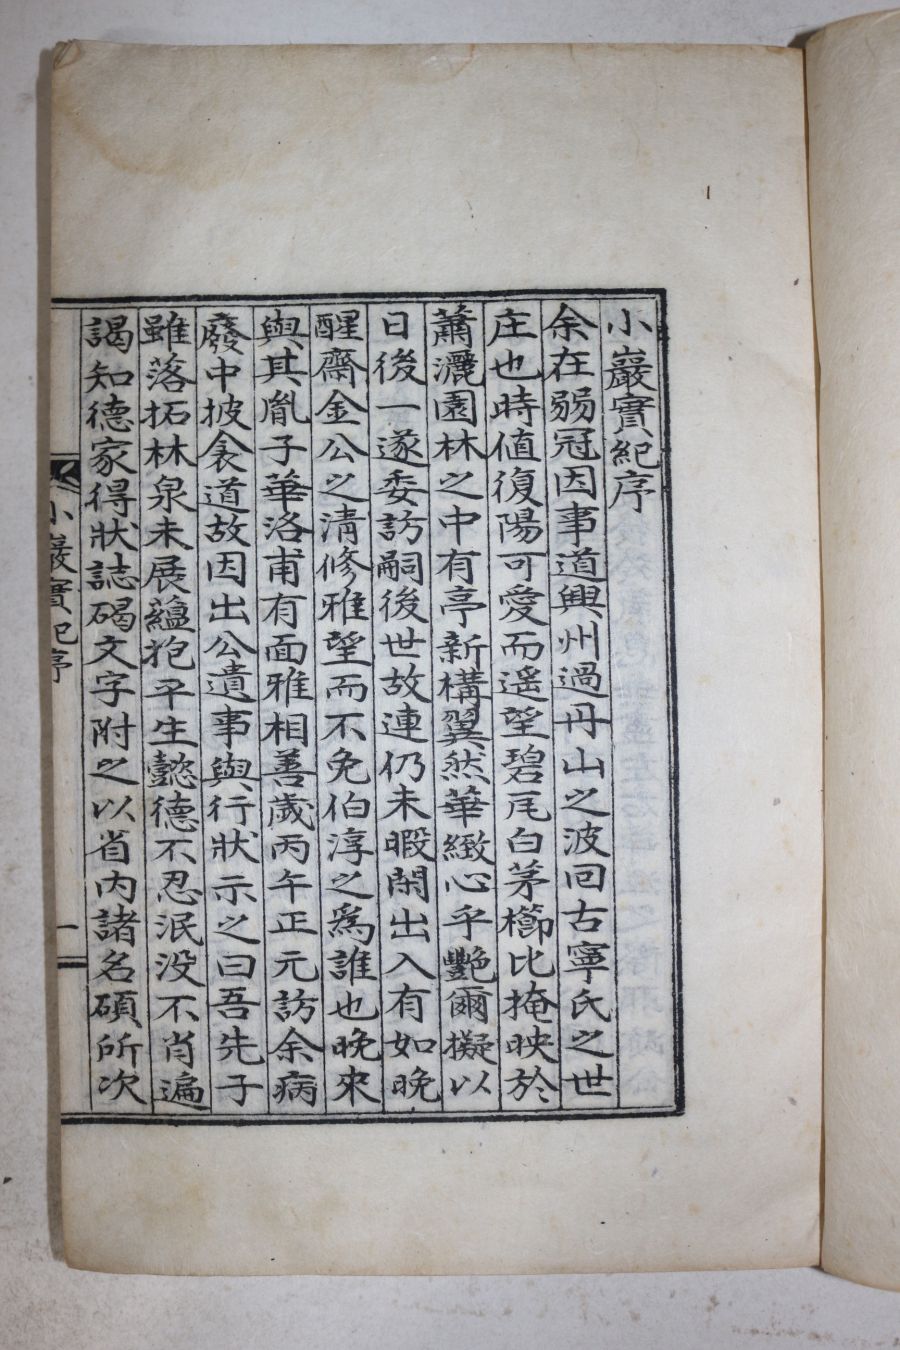 小巖實紀序
余在弱冠因事道興州過丹山之波回古寧氏之世
庄也時值復陽可愛而遥望碧瓦白茅櫛比掩映於
蕭灑園林之中有亭新構翼然華緻心乎艷爾擬以
日後一遂委訪嗣後世故連仍未暇閑出入有如晩
醒齋金公之清修雅望而不免伯淳之爲誰也晩來
與其胤子華洛甫有面雅相善歲丙午正元訪余病
廢中披衾道故因出公遺事與行狀示之曰吾先子
雖落拓林泉未展蘊抱平生懿德不忍泯没不肖遍
謁知德家得狀誌碣文字附之以省内諸名碩所次
小巖實紀序
一